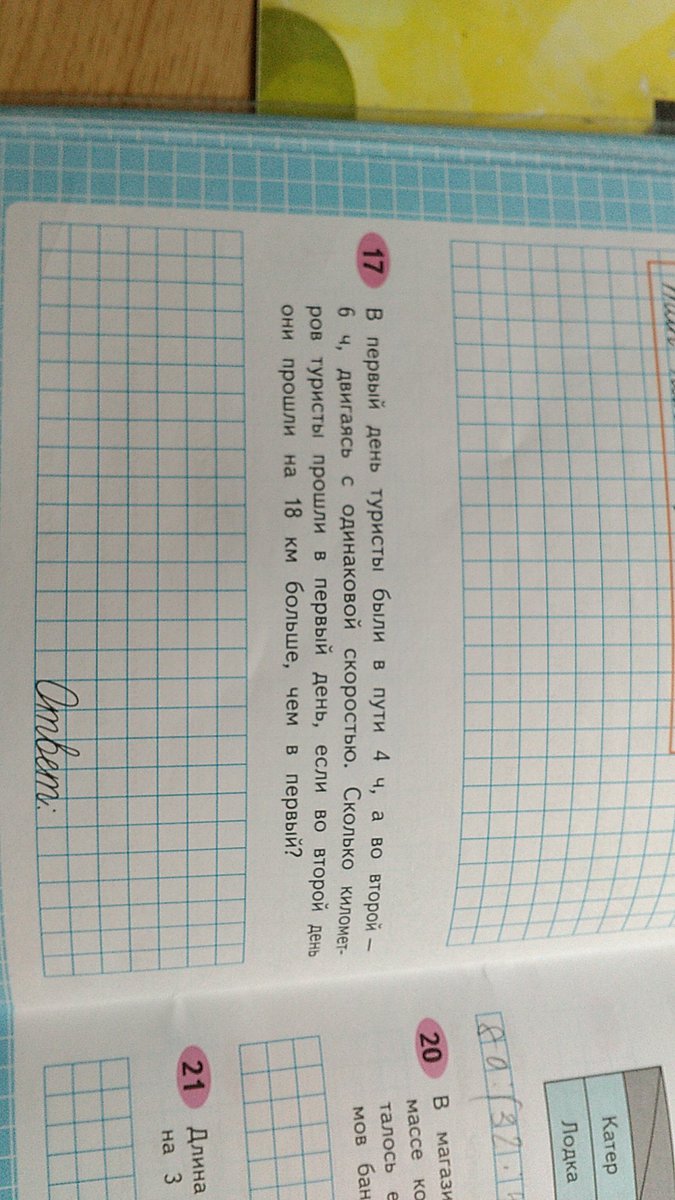 17
В первый день туристы были в пути 4 ч, а во второй –
6 ч, двигаясь с одинаковой скоростью. Сколько километ-
ров туристы прошли в первый день, если во второй день
они прошли на 18 км больше, чем в первый?
Ответ:
Катер
Лодка
20
В магази
массе ко
талось е
мов бан
21
Длина
на 3